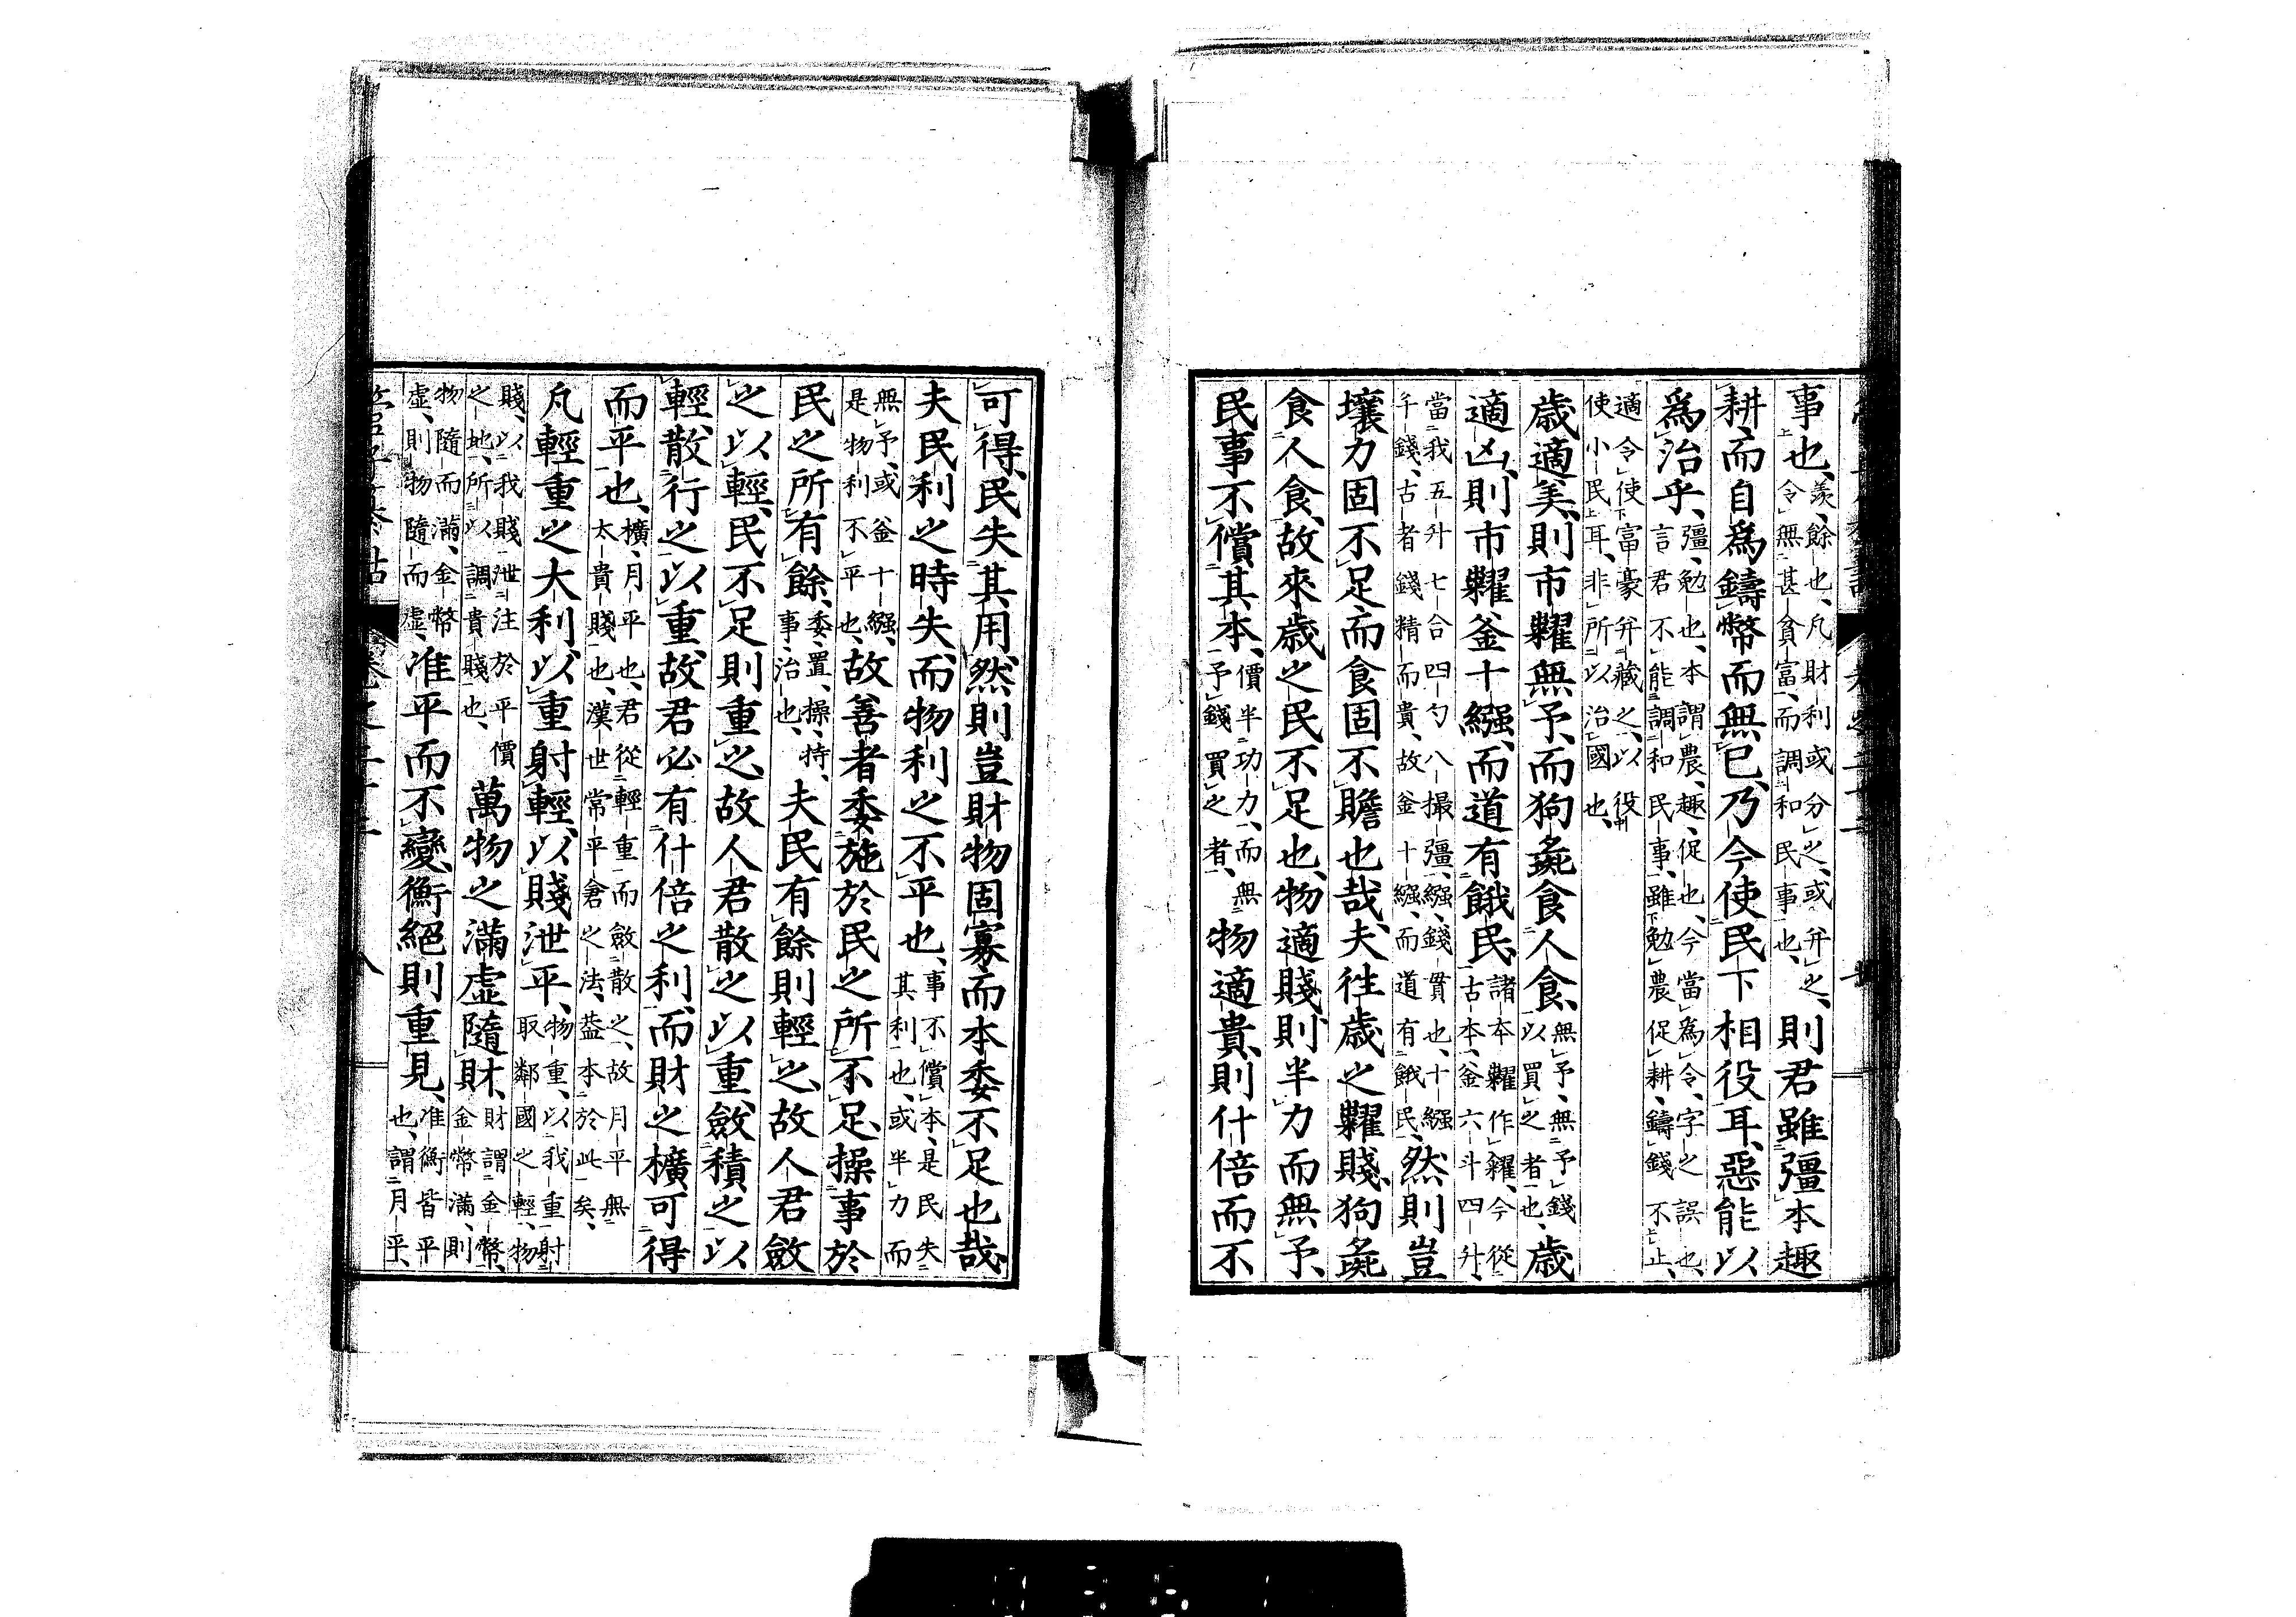 事也、羨、餘也、凡財利或分之、或幷之、令無甚貧富、而調和民事也、則君雖彊本趣
耕、而自爲鑄幣而無已、乃今使民下相役耳、惡能以
爲治乎、彊、勉也、本謂農、趣、促也、今當爲令、字之誤也、言君不能調和民事、雖勉農促耕、鑄錢不止、
適令使富豪幷藏之、以役使小民耳、非所以治國也、
歳適美、則市糶無予、而狗彘食人食、無予、無予錢以買之者也、歳
適凶、則市糶釜十繦、而道有餓民、諸本糶作糴、今從古本、釜六斗四升、
當我五升七合四勺八撮、彊、繦、錢貫也、十繦千錢、古者錢精而貴、故釜十繦、而道有餓民、然則豈
壤力固不足、而食固不贍也哉、夫往歳之糶賤、狗彘
食人食、故來歳之民不足也、物適賤、則半力而無予、
民事不償其本、價半功力、而無予錢買之者、物適貴、則什倍而不
可得、民失其用、然則豈財物固寡而本委不足也哉、
夫民利之時失、而物利之不平也、事不償本、是民失其利也、或半力而
無予、或釜十繦、是物利不平也、故善者委施於民之所不足、操事於
民之所有餘、委、置、操、持、事、治也、夫民有餘則輕之、故人君斂
之以輕、民不足則重之、故人君散之以重、斂積之以
輕、散行之以重、故君必有什倍之利、而財之櫎可得
而平也、櫎、月平也、君從輕重而斂散之、故月平無太貴賤也、漢世常平倉之法、葢本於此矣、
凡輕重之大利、以重射輕、以賤泄平、物重、以我重射取鄰國之輕、物
賤、以我賤泄注於平價之地、所以調貴賤也、萬物之滿虛隨財、財謂金幣、金幣滿、則
物隨而滿、金幣虛、則物隨而虛、准平而不變、衡絕則重見、准衡皆平也、謂月平、